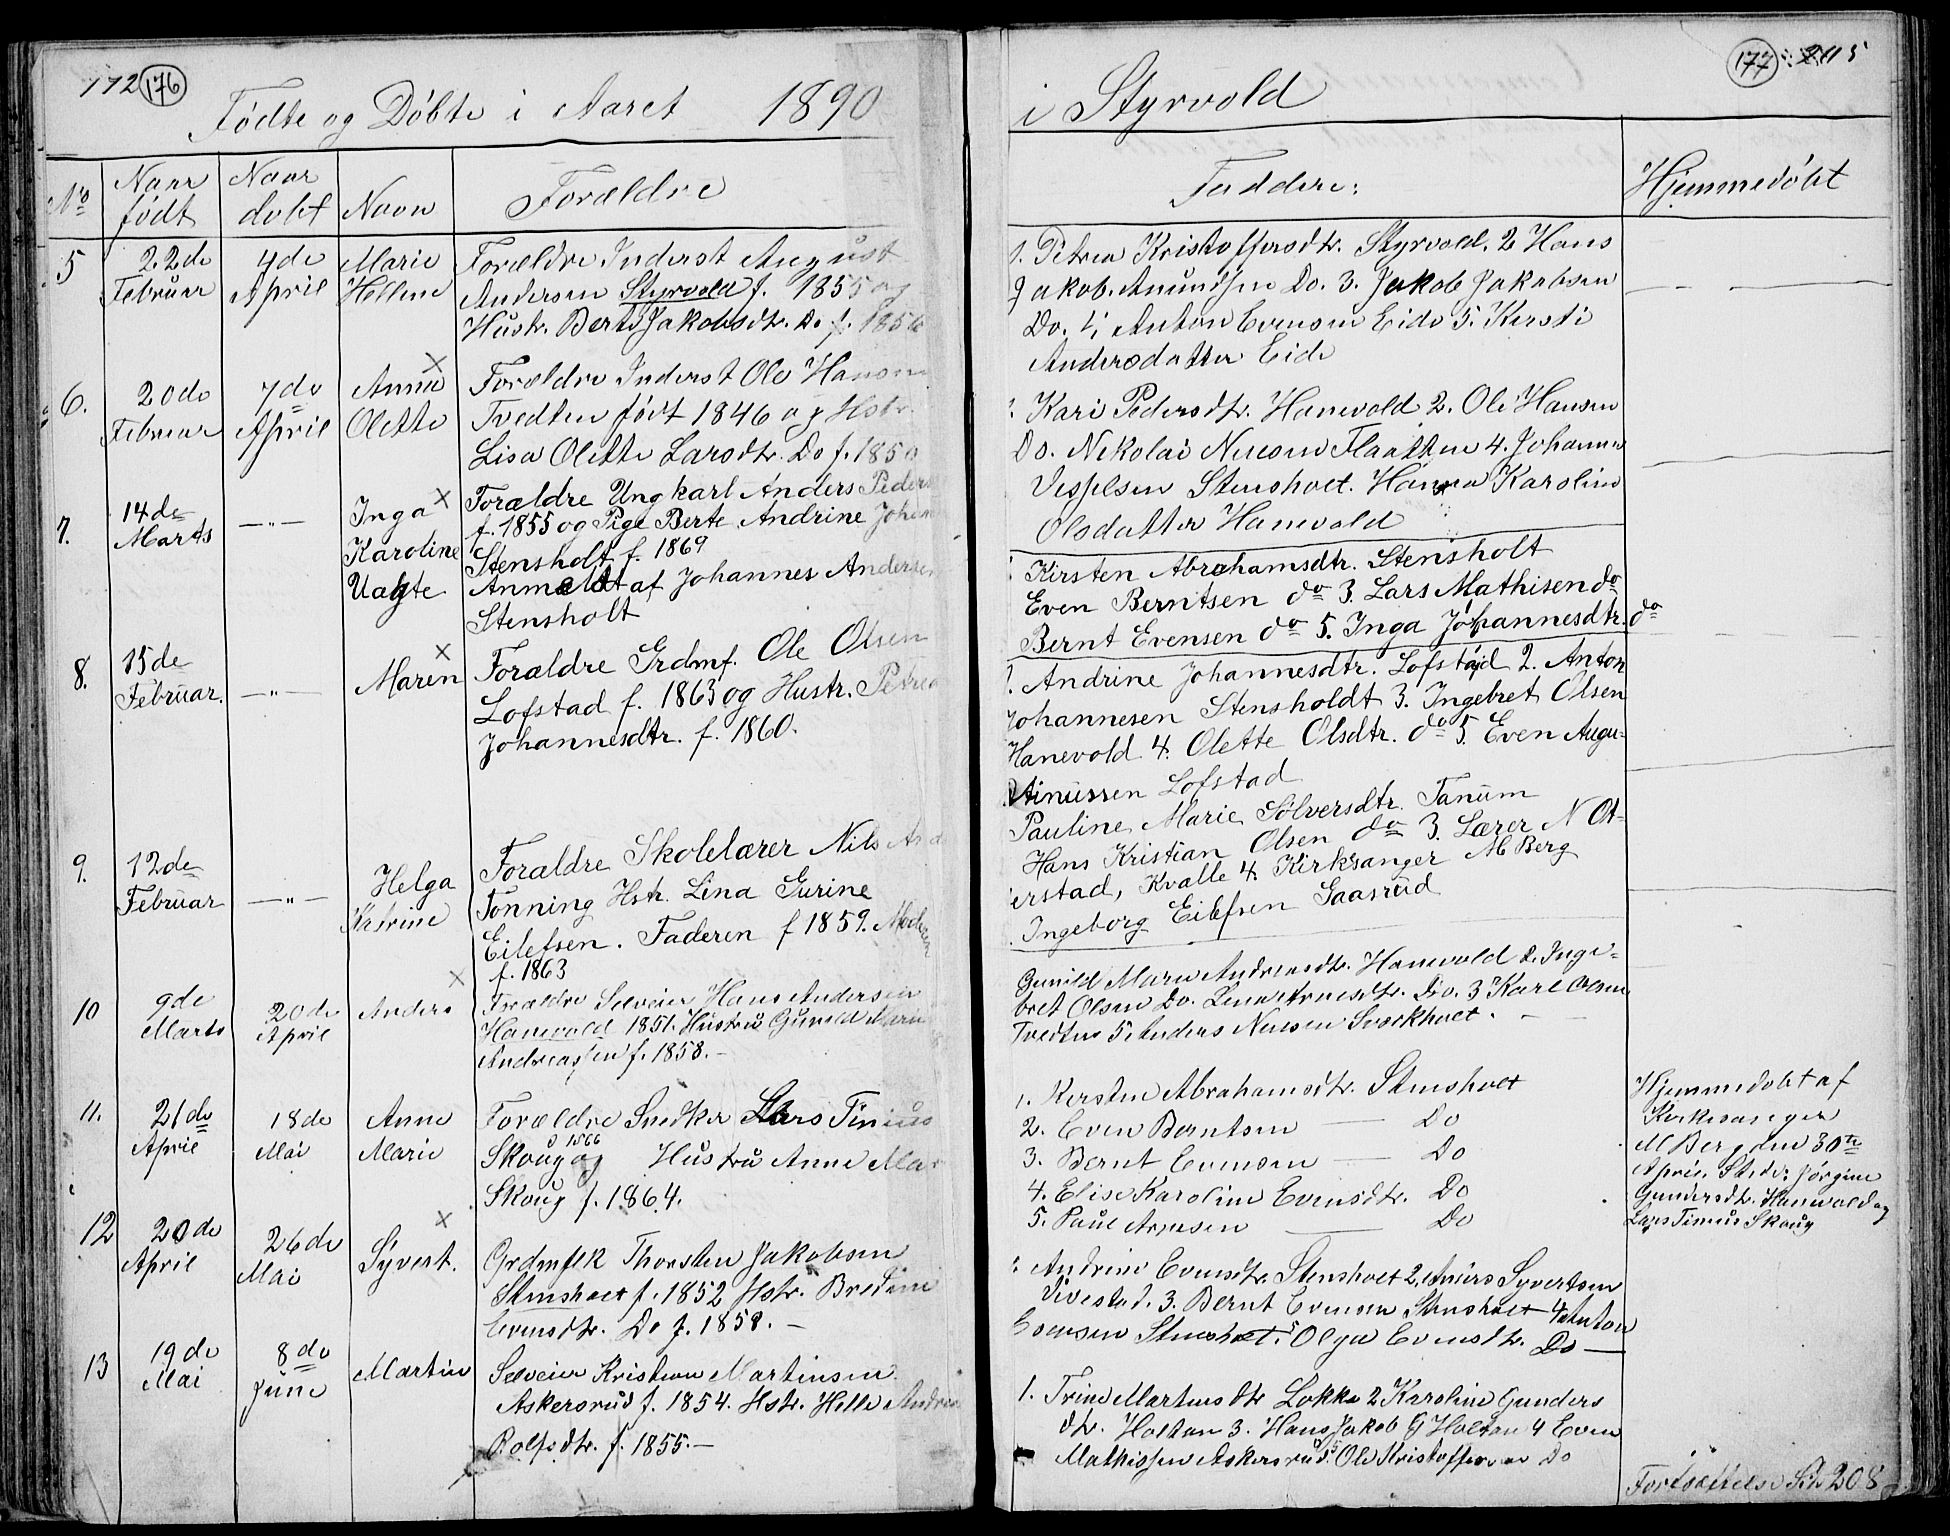 172 (176)
Fødte og Døbte i Aaret 1890
No
Naar født
Naar dobt
Navn
Forældre
5
22de Februar
4de April
Marie Helline
Forældre Inderst August
Andersen Styrvold f. 1855 og
Hustr. Berte Jakobsdtr. Do f. 1856
6.
20de Februar
7de April
Anna Olette
Forældre Inderst Ole Hansen
Tvedten født 1846 og Hstr.
Lisa Olette Larsdtr. Do f. 1850
7.
14de Marts
—„—
Inga Karoline Uægte
Forældre Ungkarl Anders Peders
f. 1855 og Pige Berte Andrine Johan
Stensholt f. 1869
Anmeldt af Johannes Andersen
Stensholt
8.
15de Februar.
—„—
Maren
Foraldre Grdmf. Ole Olsen
Lofstad f. 1863 og Hustr. Petrea
Johannesdtr. f. 1860.
9.
12de Februar
—„—
Helga Katrine
Foraldre Skolelærer Nils
Tonning Hstr. Lina Gurine
Eilefsen. Faderen f 1859. Moderen
f. 1863
10
9de Marts
20de April
Anders
Forældre Selveier Hans Andersen
Hanevold 1851. Hustru Gunild Marie
Andreassen f. 1858.-
11.
21de April
18de Mai
Anne Marie
Forældre Snedker Lars Tinius
Skoug og Hustru Anne Mar
Skoug f. 1864.
12
20de April
26de Mai
Syvert.
Grdmflk Thorsten Jakobsen
Stensholt f. 1852 Hstr. Bredine
Evensdtr. Do f. 1858.-
13
19de Mai
8de June
Martin
Selveier Kristian Martinsen
Askersrud f. 1854. Hstr. Helle Andrea
Rolfsdtr. f. 1855.-
(177) 205
i Styrvold
Faddere:
Hjemmedøbt
1. Petrea Kristoffersdtr. Styrvold. 2 Hans
Jakob. Amundsen Do. 3. Jakob Jakobsen
Do. 4 Anton Evensen Eide 5. Kersti
Andersdatter Eide
Kari Pedersdtr. Hanevold 2. Ole Hansen
Do. Nekolai Nilsen Flaatten 4. Johannes
Stensholt. Hanna Karoline
Olsdatter Hanevold
Kirsten Abrahamsdtr. Stensholt
Even Berntsen do 3. Lars Mathisen do
Bernt Evensen do 5. Inga Johannesdtr. do
1. Andrine Johannesdtr. Lofstad 2. Anton
Johannesen Stensholdt 3. Ingebret Olsen
Hanevold 4. Olette Olsdtr. do 5. Even Augu-
stinussen Lofstad
Pauline Marie Sølversdtr. Tanum
Hans Kristian Olsen do 3. Lærer N Ot-
erstad, Kvalle 4. Kirksanger M Berg
Ingeborg Eilefsen Gaasrud
Gunild Marie Andreasdtr. Hanevold 2. Inge-
bret Olsen Do. Lina Arnesdtr. Do. 3 Karl Olsen
Tvedten 5 Anders Nilsen Svartholt.
1. Kersten Abrahamsdtr. Stensholt
2. Even Berntsen — Do
3. Bernt Evensen — Do
4. Elise Karoline Evensdtr. Do
5. Paul Arnesen — Do
Hjemmedøbt af
Kirkesanger
M Berg den 30te
April. Jørgine
Gundersdtr. Hanevold og
Lars Tinius Skoug
Andrine Evensdtr. Stensholt 2. Anders Syvertsen
Vivestad. 3. Bernt Evensen Stensholt 4 Anton
Evensen Stensholt. 5 Olga Evensdtr. Do —
1. Trine Martinsdtr Løkke 2 Karoline Gunders
dtr. Holtan 3. Hans Jakob G Holtan 4 Even
Mathissen Askersrud. 5 Ole Kristoffersen Do
Fortsættelse Side 208